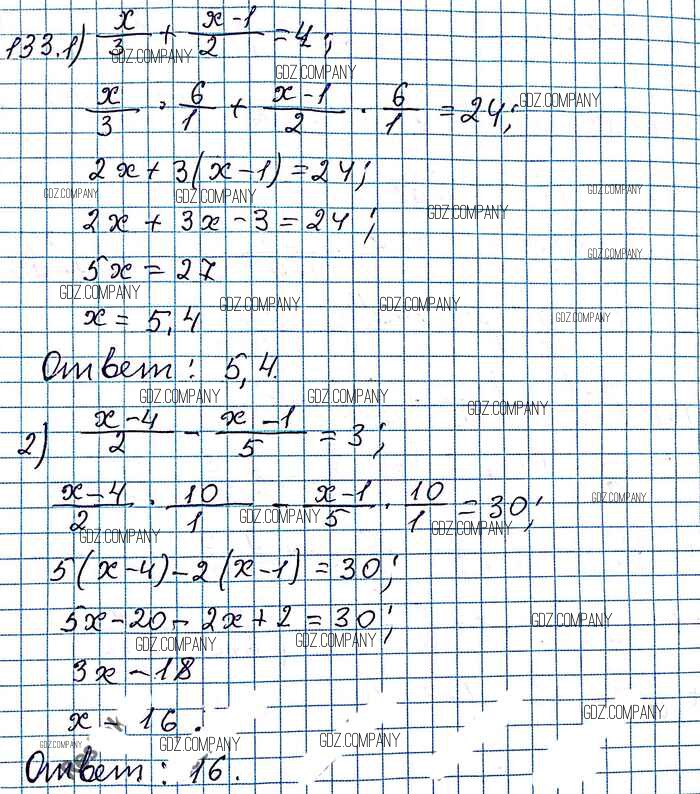 133.1) x/3 + x-1/2 = 4;
GDZ.COMPANY
GDZ.COMPANY
x/3 · 6/1 + x-1/2 · 6/1 = 24;
GDZ.COMPANY
2x + 3(x-1) = 24;
GDZ.COMPANY GDZ.COMPANY GDZ.COMPANY
2x + 3x - 3 = 24;
GDZ.COMPANY
GDZ.COMPANY
5x = 27
GDZ.COMPANY GDZ.COMPANY GDZ.COMPANY
x = 5,4
GDZ.COMPANY
Ответ: 5,4.
GDZ.COMPANY GDZ.COMPANY GDZ.COMPANY
2) x-4/2 - x-1/5 = 3;
x-4/2 · 10/1 - x-1/5 · 10/1 = 30;
GDZ.COMPANY
GDZ.COMPANY GDZ.COMPANY GDZ.COMPANY
5(x-4)-2(x-1) = 30;
5x-20-2x+2 = 30;
GDZ.COMPANY
GDZ.COMPANY GDZ.COMPANY
3x - 18
x - 16.
GDZ.COMPANY
GDZ.COMPANY GDZ.COMPANY GDZ.COMPANY
Ответ: 16.